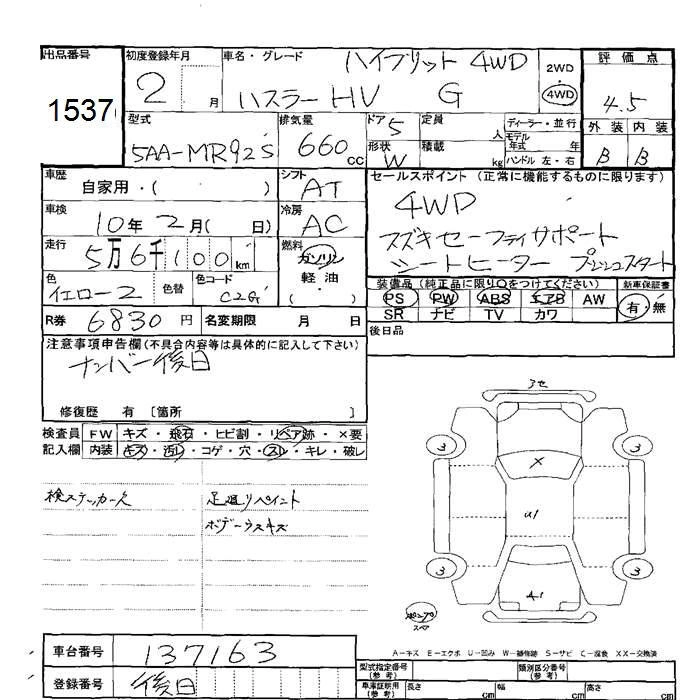 出品番号 初度登録年月 車名・グレード ハイブリット 4WD 2WD 評価点
1537 2 月 ハスラーHV G 4WD 4.5
型式 排気量 ドア 5 定員 人 ディーラー・並行 外装 内装
5AA-MR92S 660 CC 形状 W 積載 kg モデル年式 年 B B
ハンドル 左・右
車歴 シフト セールスポイント (正常に機能するものに限ります)
自家用・( ) AT 4WD
車検 冷房
10年 2月( 日) AC スズキセーフティサポート
走行 燃料 シートヒーター プッシュスタート
5万6千100km ガソリン
色 色替 色コード 軽油 装備品 (純正品に限り○をつけてください) 新車保証書
イエロー2 C2G ( ) PS PW ABS エアB AW 有・無
R券 6830円 名変期限 月 日 SR ナビ TV カワ
注意事項申告欄(不具合内容等は具体的に記入して下さい) 後日品
ナンバー後日
修復歴 有 [箇所 ]
検査員 FW キズ・飛石・ヒビ割・リペア跡・×要
記入欄 内装 キズ・汚レ・コゲ・穴・スレ・キレ・破レ
検ステッカー欠 足廻りペイント
ボデーウスキズ
アセ
3 3
×
U1
3 3
A1
スペア
A-キズ E-エクボ U-凹み W-補修跡 S-サビ C-腐食 XX-交換済
車台番号 137163 型式指定番号(参考) 類別区分番号(参考)
登録番号 後日 車庫証明用(参考) 長さ cm 幅 cm 高さ cm